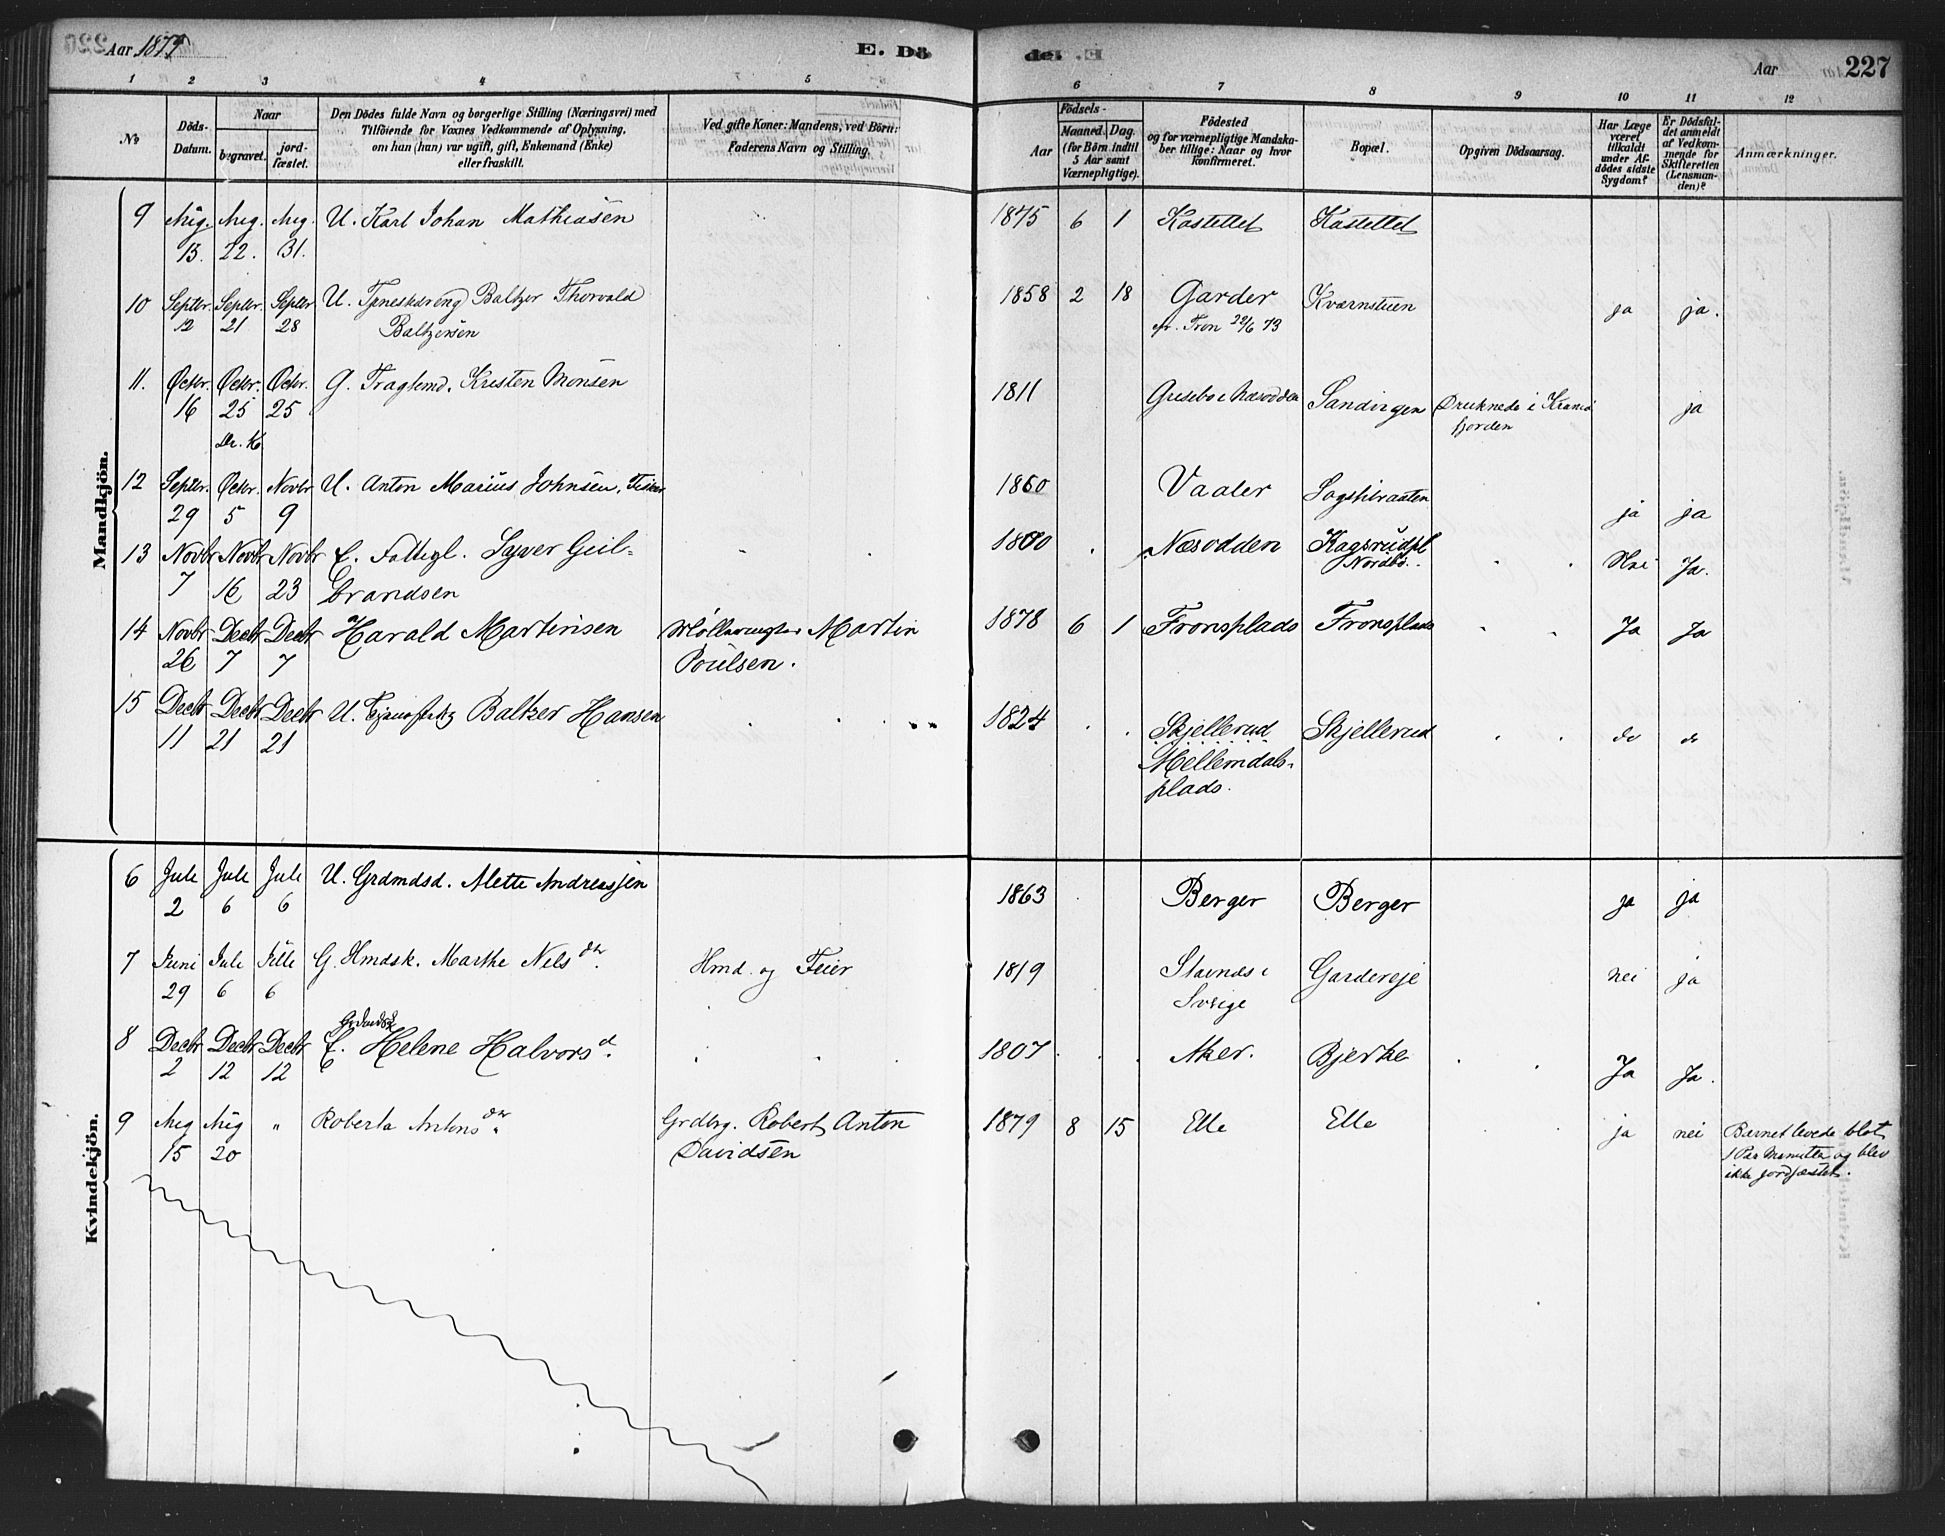 Aar 1879
E. Dö
de. E.
Aar
227
1 2 3 4 5 6 7 8 9 10 11 12
No
Döds-Datum.
Naar
begravet.
jord-fæstet.
Den Dödes fulde Navn og borgerlige Stilling (Næringsvei) med
Tilföiende for Voxnes Vedkommende af Oplysning,
om han (hun) var ugift, gift, Enkemand (Enke)
eller fraskilt.
Ved gifte Koner: Mandens, ved Börn:
Faderens Navn og Stilling.
Födsels-
Aar
Maaned.
Dag.
(for Börn indtil
5 Aar samt
Værnepligtige).
Födested
og for værnepligtige Mandska-
ber tillige: Naar og hvor
konfirmeret.
Bopæl.
Opgiven Dödsaarsag.
Har Læge
været
tilkaldt
under Af-
dödes sidste
Sygdom?
Er Dödsfal-
det anmeldt
af Vedkom-
mende for
Skifteretten
(Lensman-
den)?
Anmærkninger.
Mandkjön.
9 Aug. 13. Aug. 22. Aug. 31. U. Karl Johan Mathiasen 1875 6 1 Kastellet Kastellet
10 Septbr. 12 Septbr. 21 Septbr 28 U. Tjenestdreng Baltzer Thorvald
Baltzersen 1858 2 18 Garder Kværnstuen ja ja.
Fron 29/6 73
11. Octbr. 16 Octbr. 25 Octbr. 25 G. Kristen Monsen 1811 Sandingen Druknede i
fjorden ja
12 Septbr. 29 Octbr. 5 Novbr 9 U. Anton Marius Johnsen, 1860 Vaaler ja ja
13 Novbr 7 Novbr 16 Novbr 23 E. Fattigl. Syver Gul-
brandsen 1800 Næsodden Nordbö. Nei Ja.
14 Novbr 26 Decbr 7 Decbr 7 Harald Martinsen Martin
Poulsen. 1878 6 1 Fronsplads Fronsplads Ja Ja
15 Decbr 11 Decbr 21 Decbr 21 U. Baltzer Hansen 1824 Skjellerud Skjellerud do do
Mellemdals-
plads.
Kvindekjön.
6 Juli 2 Juli 6 Juli 6 U. Grdmdsd. Alette Andreassen 1863 Berger Berger ja ja
7 Juni 29 Juli 6 Julli 6 G. Hmdsk. Marthe Nels dtr. Hmd. og Feier 1819 Gardereje nei ja
Sverige
8 Decbr 2 Decbr 12 Decbr 12 E. Helene Halvors d. 1807 Aker. Bjerke Ja Ja.
9 Aug 15 Aug 20 " Roberta Antons dtr. Grdbrg. Robert Anton
Davidsen 1879 8 15 Elle Elle ja nei Barnet levede blot
1 Par Minutter og blev
ikke jordfæstet.